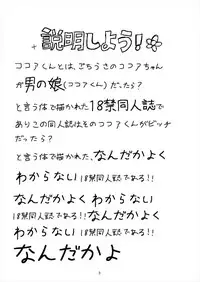 説明しよう!
ココアくんとは、ごちうさのココアちゃん
が男の娘(ココアくん)だったら?
と言う体で描かれた18禁同人誌で
ありこの同人誌はそのココアくんがビッチ
だったら?
と言う体で描かれた、なんだかよく
わからない18禁同人誌である!!
なんだかよくわからない
18禁同人誌である!!なんだかよく
わからない18禁同人誌である!!
なんだかよ